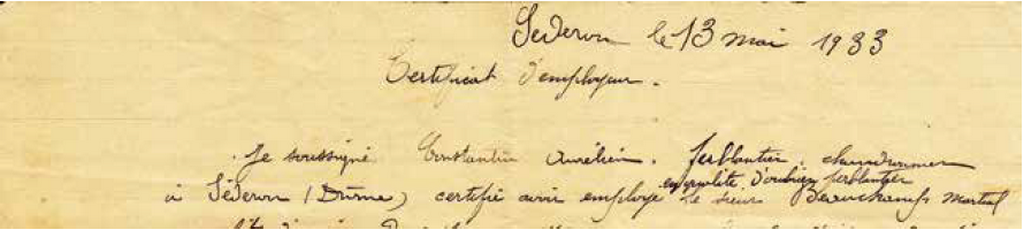 Séderon le 13 mai 1933
Certificat d'employeur.
Je soussigné Constantin Aurélien. ferblantier. chaudronnier
en qualité d'ouvrier ferblantier
à Séderon (Drôme) certifie avoir employé le sieur Beauchamps Martial